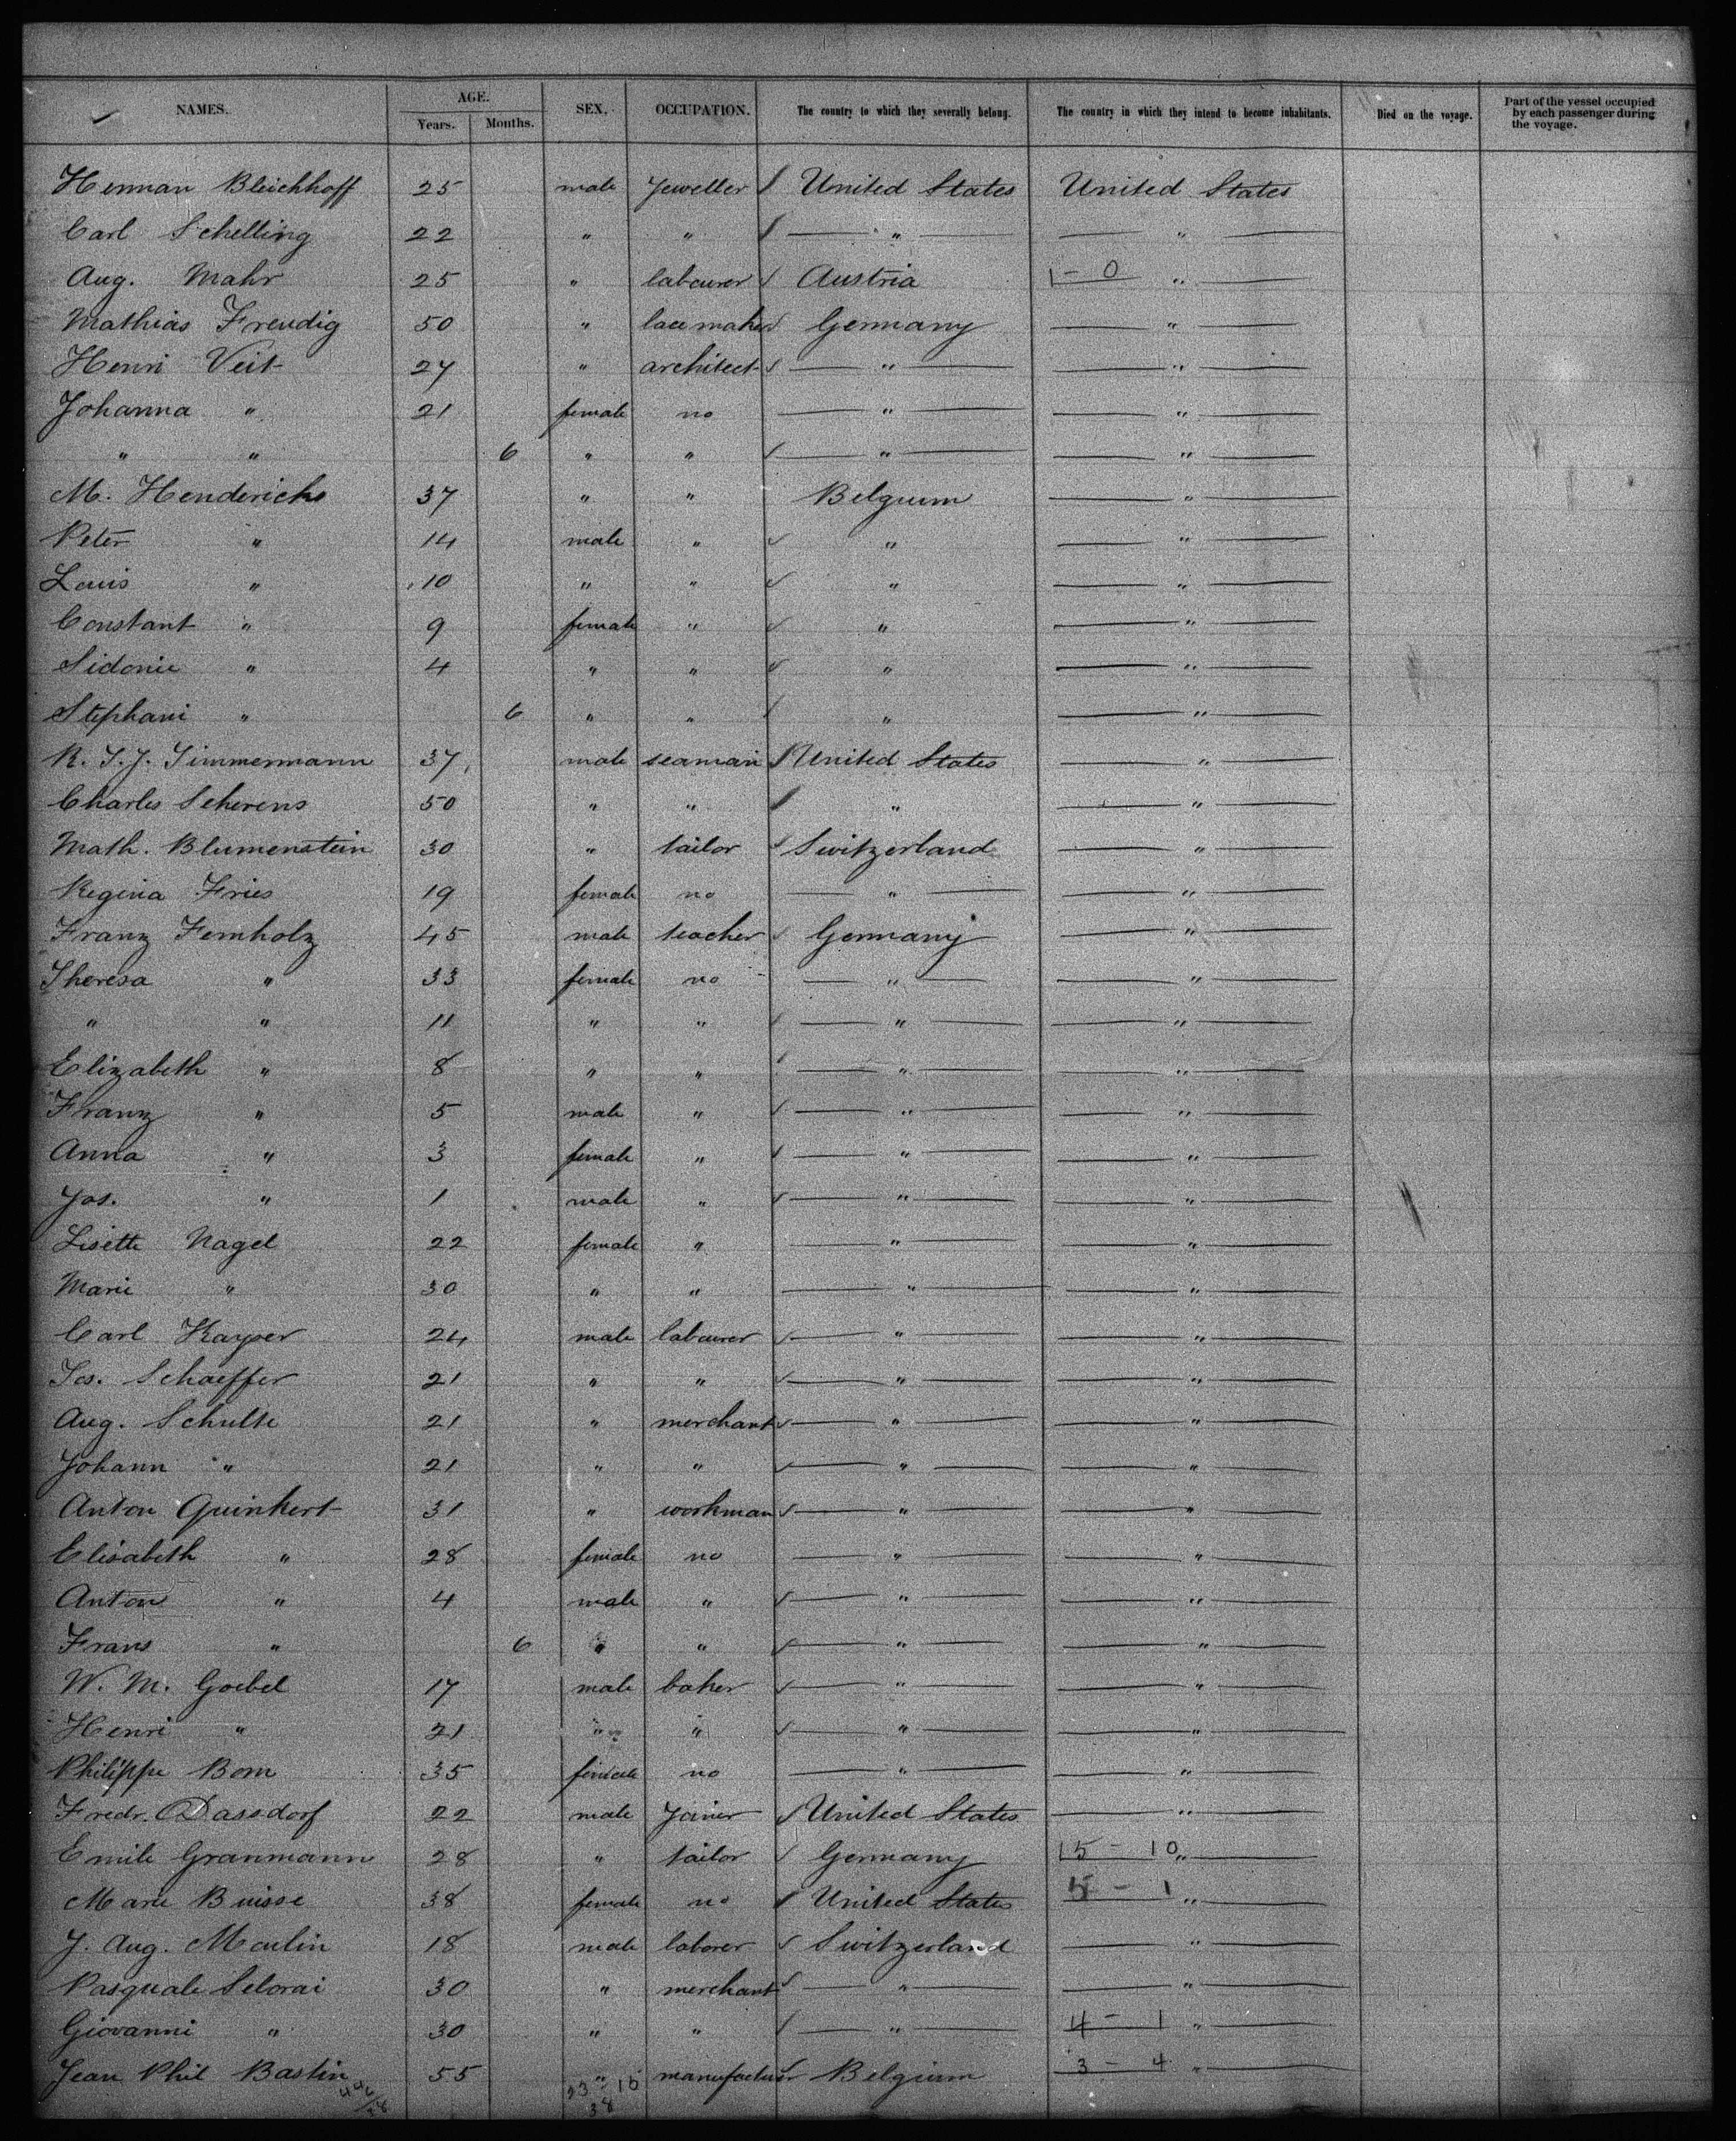 NAMES. AGE. Years. Months. SEX. OCCUPATION. The country to which they severally belong. The country in which they intend to become inhabitants. Died on the voyage. Part of the vessel occupied by each passenger during the voyage.
Herman Bleichhoff 25 male Jeweller United States United States
Carl Schelling 22 " " " "
Aug. Mahr 25 " labourer Austria 1 - 0 "
Mathias Freudig 50 " lace maker Germany "
Henri Veit 27 " architect " "
Johanna " 21 female no " "
" " 6 " " " "
M. Henderichs 37 " " Belgium "
Peter " 14 male " " "
Louis " 10 " " " "
Constant " 9 female " " "
Sidonie " 4 " " " "
Stephani " 6 " " " "
R. T. J. Timmermann 37 male seaman United States "
Charles Scherens 50 " " " "
Math. Blumenstein 30 " tailor Switzerland "
Regina Fries 19 female no " "
Franz Femholz 45 male teacher Germany "
Theresa " 33 female no " "
" " 11 " " " "
Elizabeth " 8 " " " "
Franz " 5 male " " "
Anna " 3 female " " "
Jos. " 1 male " " "
Lisette Nagel 22 female " " "
Marie " 30 " " " "
Carl Kayser 24 male labourer " "
Jos. Schaeffer 21 " " " "
Aug. Schulte 21 " merchant " "
Johann " 21 " " " "
Anton Quinkert 31 " workman " "
Elisabeth " 28 female no " "
Anton " 4 male " " "
Frans " 6 " " " "
W. M. Goebel 17 male baker " "
Henri " 21 " " " "
Philippe Bom 35 female no " "
Fredr. Dassdorf 22 male Joiner United States "
Emile Granmann 28 " tailor Germany 15 - 10 "
Marie Buisse 38 female no United States 5 - 1 "
J. Aug. Moulin 18 male laborer Switzerland "
Pasquale Selorai 30 " merchant " "
Giovanni " 30 " " " 4 - 1 "
Jean Phil Bastin 55 " manufacturer Belgium 3 - 4 "
38